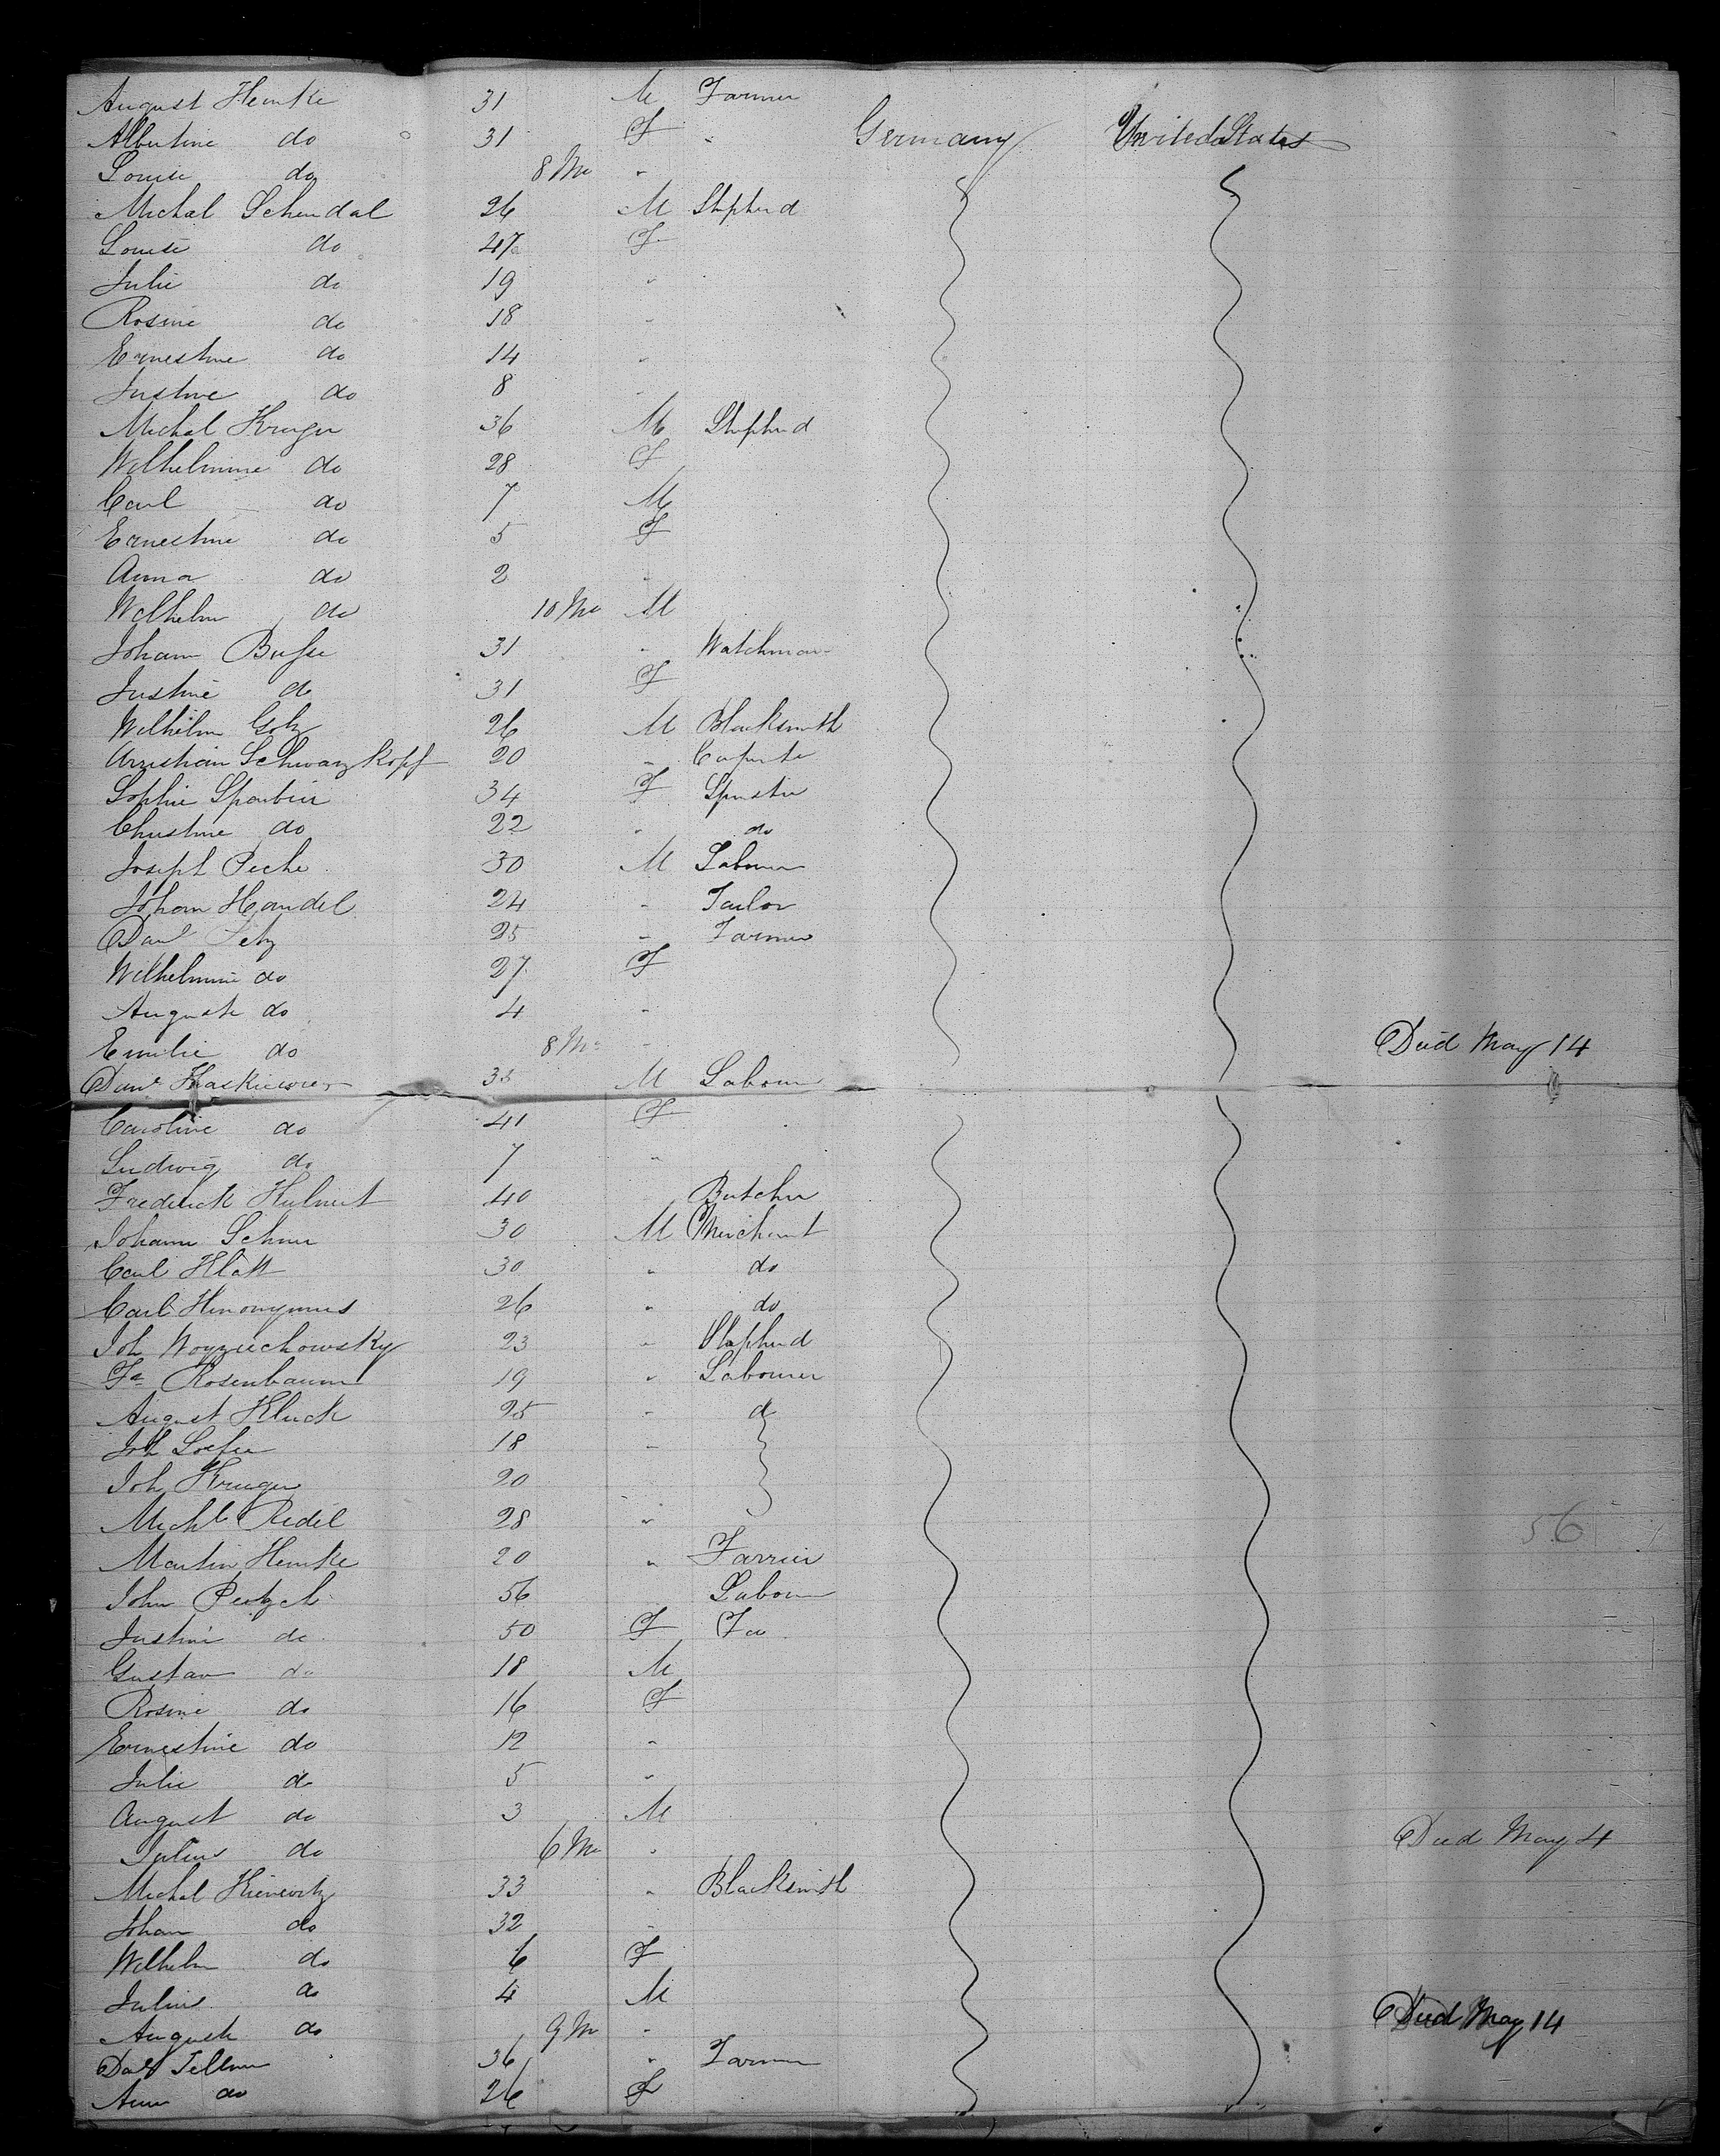 August Hemke 31 M Farmer
Albertine do 31 F " Germany United States
Louise do 8 Mo "
Michal Schendal 26 M Shepherd
Louise do 47 F
Julie do 19 "
Rosine do 18 "
Ernestine do 14 "
Justine do 8 "
Michal Kruger 36 M Shepherd
Wilhelmine do 28 F
Carl do 7 M
Ernestine do 5 F
Anna do 2 "
Wilhelm do 10 Mo M
Johann Busse 31 " Watchman
Justine do 31 F
Wilhelm Golz 26 M Blacksmith
Christian Schwarzkopf 20 " Carpenter
Sophie 34 F Spinster
Christine do 22 " do
Joseph Peche 30 M Labourer
Johan Handel 24 " Tailor
Danl 25 " Farmer
Wilhelmine do 27 F
Auguste do 4 "
Emilie do 8 Mo " Died May 14
Danl M Labourer
Caroline do 41 F
Ludwig do 7 "
Frederick 40 " Butcher
Johann 30 M Merchant
Carl Klatt 30 " do
Carl Hieronymus 26 " do
Joh Woyzechowsky 23 " Shepherd
Fr Rosenbaum 19 " Labourer
August Kluck 25 " do
Joh 18 "
Joh Kruger 20
Michl Redel 28 "
56
Martin Hemke 20 " Farrier
John Peotzch 56 Labour
Justine do 50 F
Gustav do 18 M
Rosine do 16 F
Ernestine do 12 "
Julie do 5 "
August do 3 M
Julius do 6 Mo " Died May 4
Michal Kienevitz 33 " Blacksmith
Johan do 32 "
Wilhelm do 6 F
Julius do 4 M
August do 9 M " Died May 14
36 " Farmer
Ann do 26 F